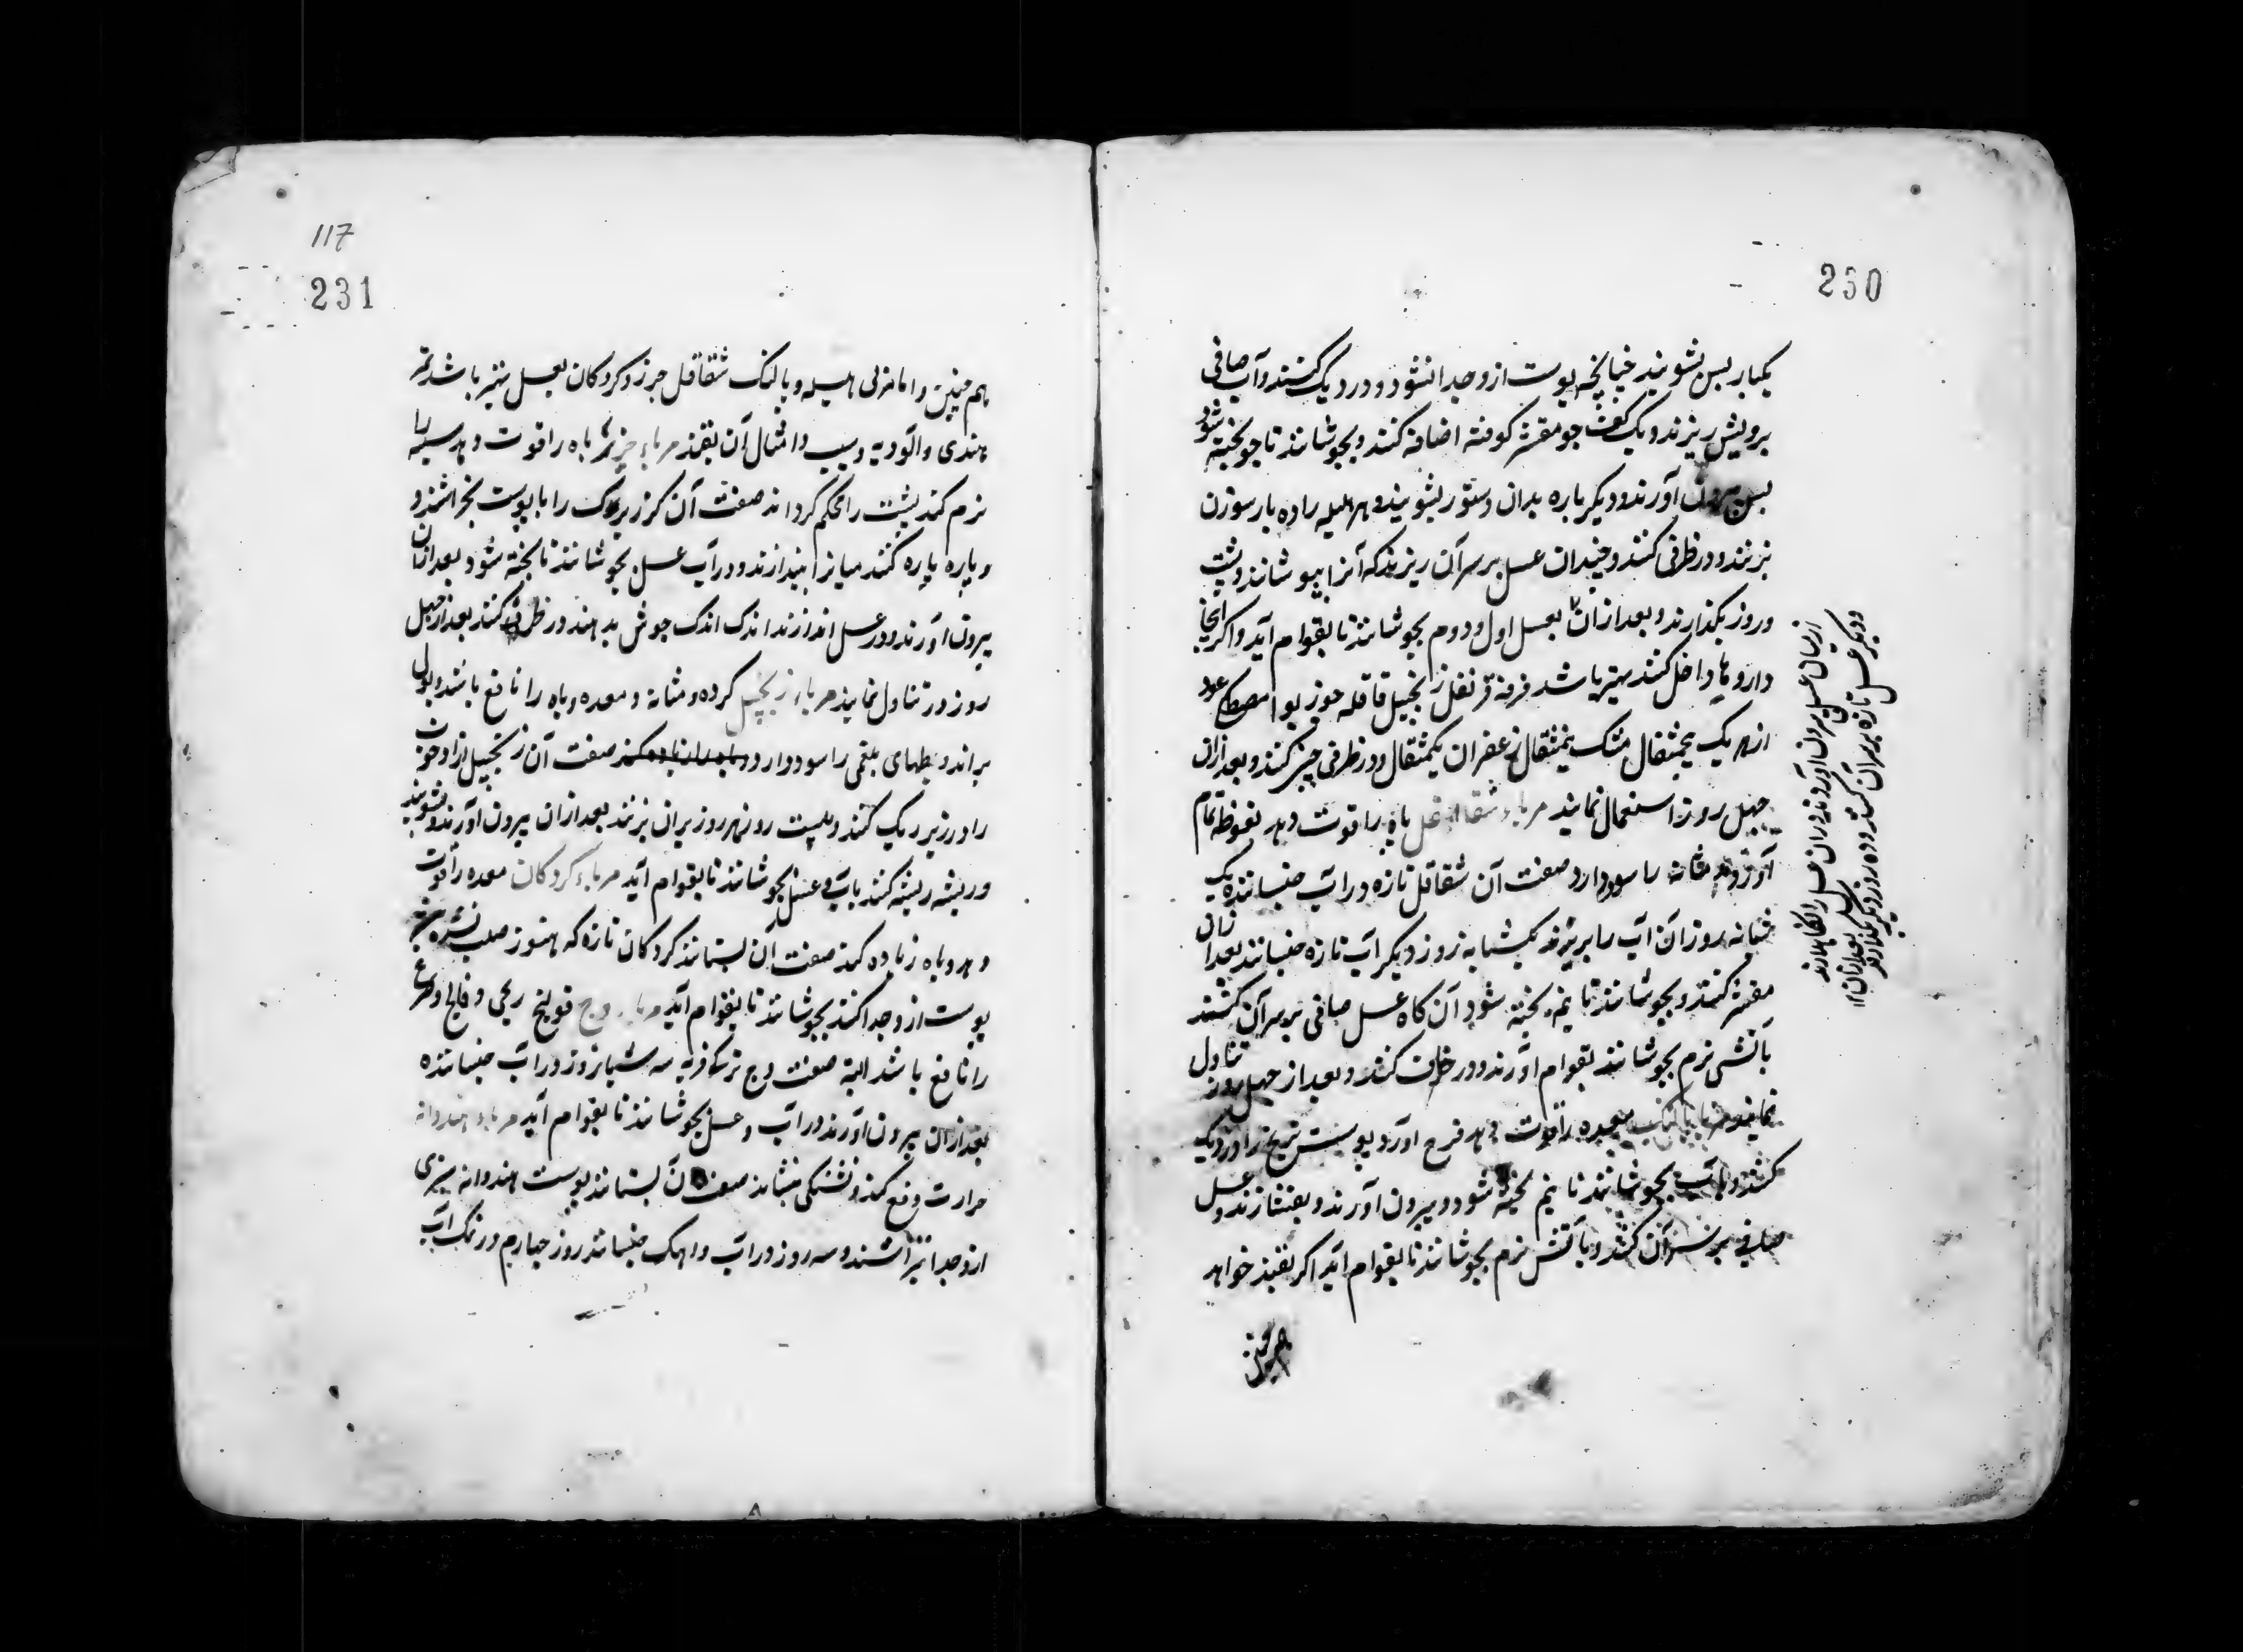 230
یکبار بس بشویند چنانچه پوست ازو جدا نشود و در دیک کنند و آب صافی
برویش ریزند و یک کف جو مقشر کوفته اضافه کنند و بجوشانند تا جو پخته شود
بس بیرون آورند و دیکر باره بدان دستور بشویند و هر هلیله را ده بار سوزن
بزنند و در ظرفی کنند و چندان عسل بر سر آن ریزند که آنرا بپوشانند و بیست
و روز بکذارند و بعد از آن بعسل اول و دوم بجوشانند تا بقوام آید و اکر اینجا
داروها داخل کنند بهتر باشد قرفه قرنفل زنجبیل قاقله جوز بوا مصطکی عود
از هر یک نیمثقال مشک نیمثقال زعفران یکمثقال و در ظرفی چینی کنند و بعد ازان
چهل روز استعمال نمایند مرباء شقاقل باه را قوت دهد نعوظ تمام
آورد و مثانه را سود دارد صفت آن شقاقل تازه در آب خیسانند یک
شبانه روز آن آب را بریزند یکشبانه روز دیکر آب تازه خیسانند بعد ازان
مقشر کنند و بجوشانند تا نیم پخته شود آن کاه عسل صافی بر سر آن کنند
بآتش نرم بجوشانند بقوام آورند و در ظرف کنند و بعد از چهل روز تناول
نمایند مرباء بالنک معده را قوت دهد فرح آورد پوست ترنج را در دیک
کنند و بآب بجوشانند تا نیم پخته شود و بیرون آورند و بفشارند و عسل
صافی بر سر آن کنند و بآتش نرم بجوشانند تا بقوام آید اکر بقند خواهد
از میان عسل بیرون آورند و دران عسل را نکاهدارند
و دیکر عسل تازه بر سر آن کنند و ده روز دیکر بکذارند بعد ازان
هم چنین
117
231
هم چنین و اما مربی هلیله و بالنک شقاقل جزر و کردکان بعسل بهتر باشد تمر
هندی و آلو و به و سیب و امثال آن بقند مرباء جزر باه را قوت دهد سینه را
نرم کند پشت را محکم کرداند صفت آن کزر بزرک را با پوست بخراشند و
و پاره پاره کنند میانرا بیندازند و در آب عسل بجوشانند تا پخته شود بعد ازان
بیرون آورند و در عسل اندازند اندک اندک جوش بدهند در ظرفی کنند بعد از چهل
روز در تناول نمایند مرباء زنجبیل کرده و مثانه و معده و باه را نافع باشد و بول
براند و بلغمی را سود دارد صفت آن زنجبیل
را در زیر ریک کنند و بیست روز هر روز بران بزنند بعد ازان بیرون آورند و بشویند
و ریشه ریشه کنند بآب و عسل بجوشانند تا بقوام آید مرباء کردکان معده را قوت
دهد و باه زیاده کند صفت آن بستانند کردکان تازه که هنوز صلب نشده
پوست ازو جدا کنند بجوشانند تا بقوام آید مرباء وج قولنج ریحی و فالج و صرع
را نافع باشد البته صفت وج ترکی فربه سه شبانروز در آب خیسانده
بعد ازان بیرون آورند در آب و عسل بجوشانند تا بقوام آید مرباء هندوانه
حرارت دفع کند و تشنکی بنشاند صفت آن بستانند پوست هندوانه سبزی
ازو جدا بتراشند و سه روز در آب و اهک خیسانند روز چهارم در نمک آب